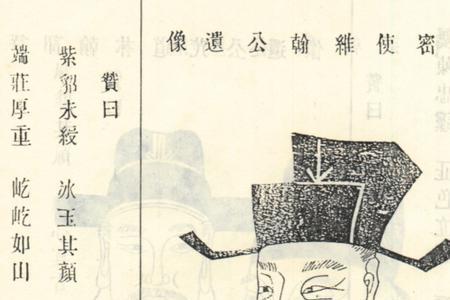 密使維翰公遺像
贊曰
紫貂未綬 冰玉其顏
端莊厚重 屹屹如山